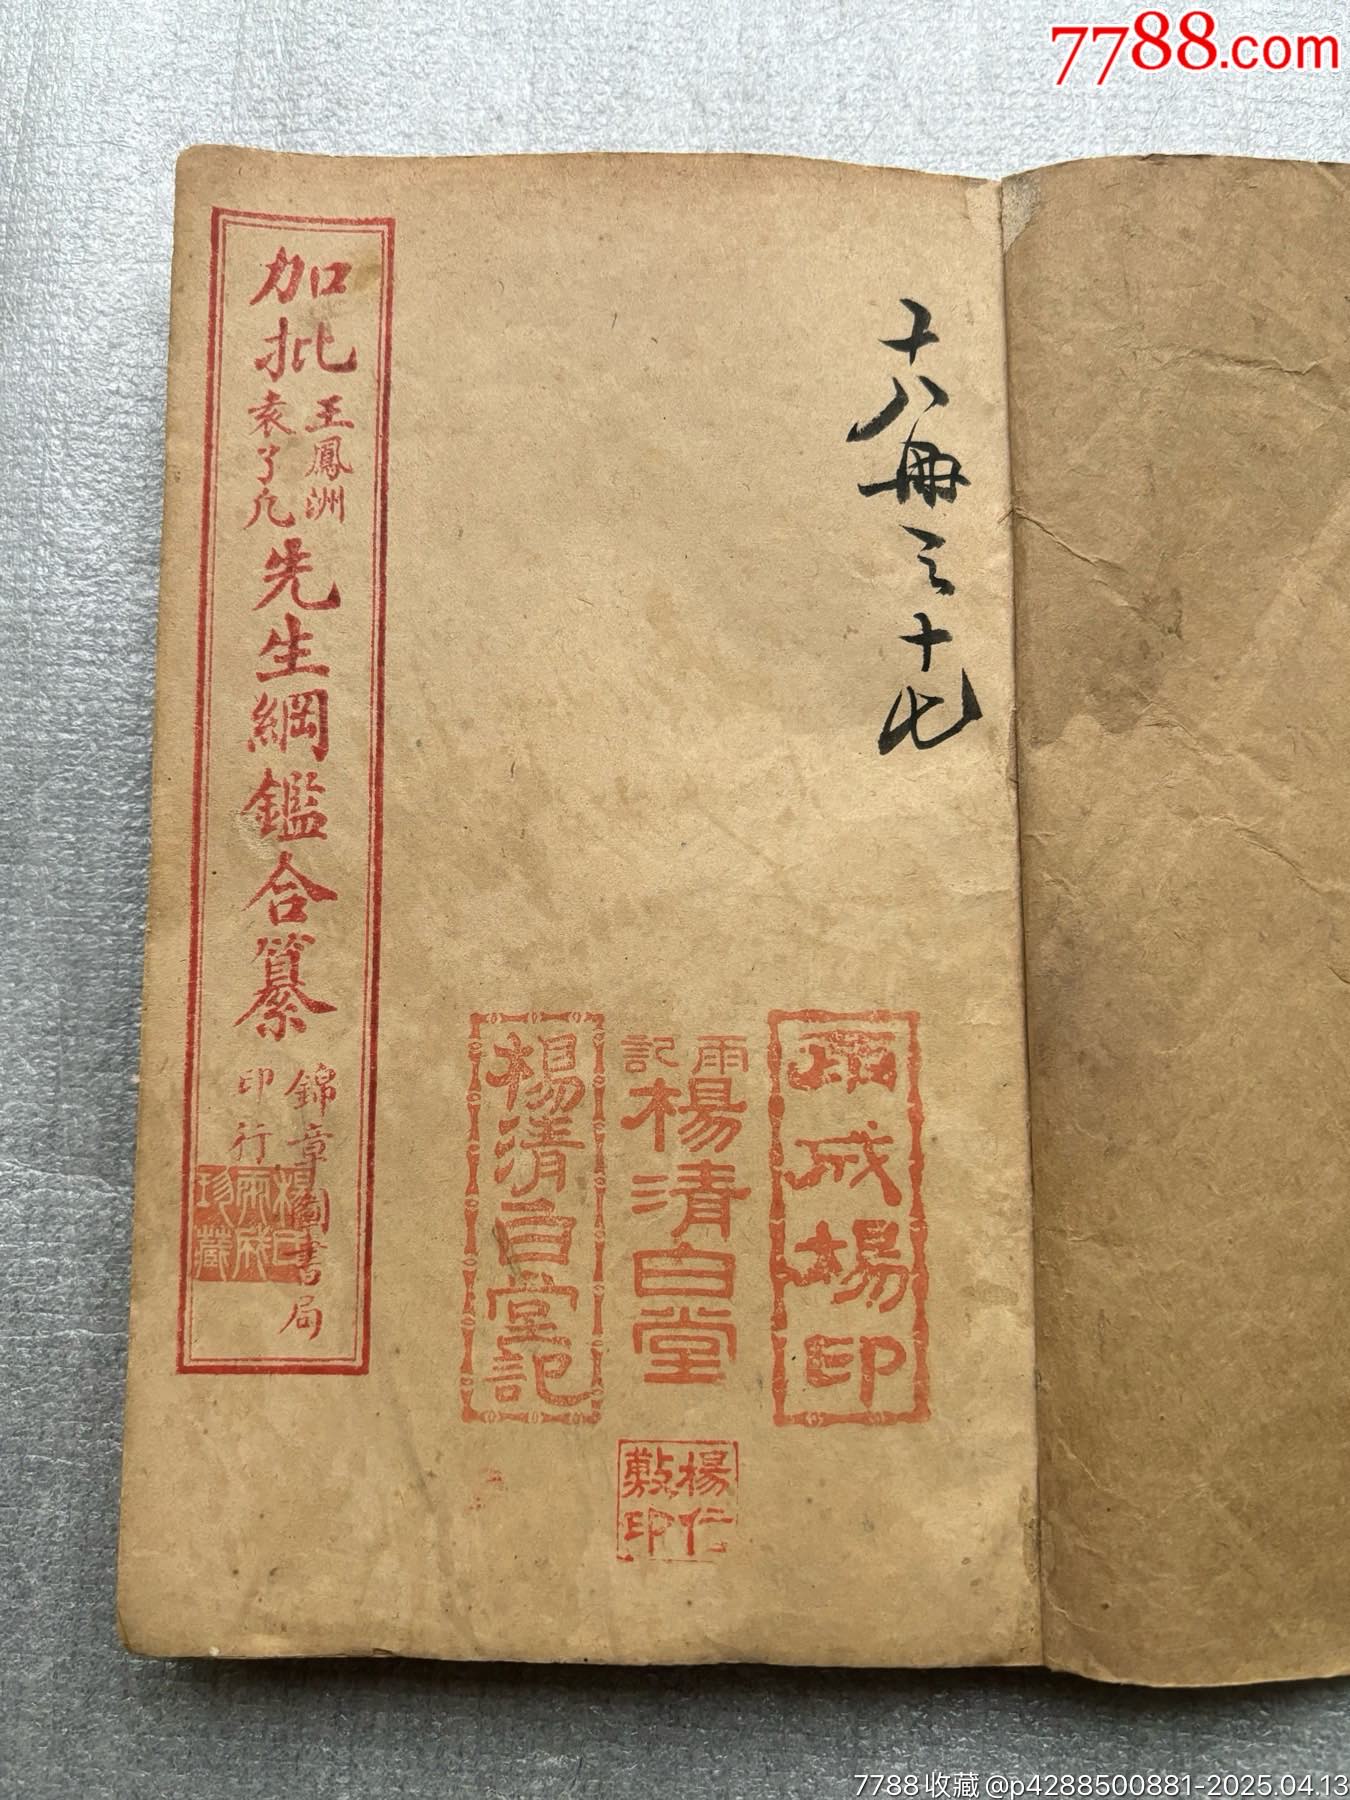 7788.com
十八冊之十七
加批
王鳳洲
袁了凡
先生綱鑑合纂
錦章圖書局
印行
楊氏
雨成
珍藏
雨成楊印
雨
記
楊清白堂
楊清白堂記
楊仁
敷印
7788收藏 @p4288500881-2025.04.13